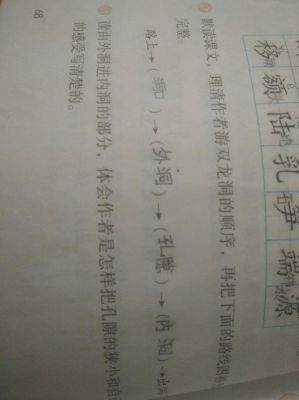 移额陆乳 端源
默读课文，理清作者游双龙洞的顺序，再把下面的路线图补
完整。
路上→(洞口)→(外洞)→(孔隙)→(内洞)→出洞
读由外洞进内洞的部分，体会作者是怎样把孔隙的狭小和自
的感受写清楚的。
68